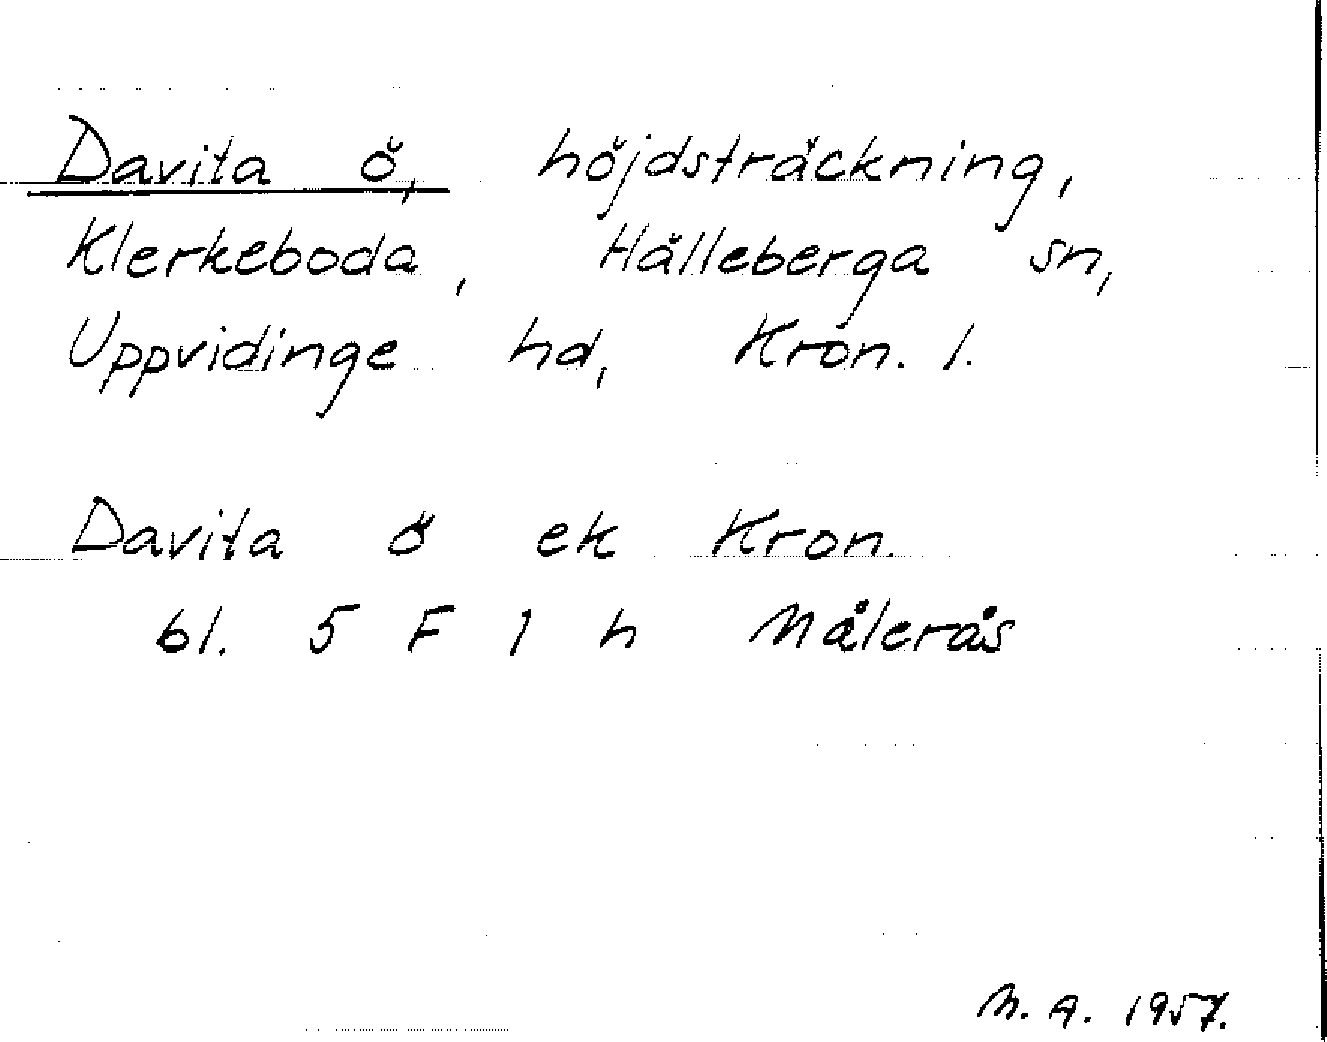 Davita ö, höjdsträckning,
Klerkeboda, Hälleberga sn,
Uppvidinge hd, Kron. l.
Davita ö ek Kron.
bl. 5 F 1 h Målerås
M. A. 1957.